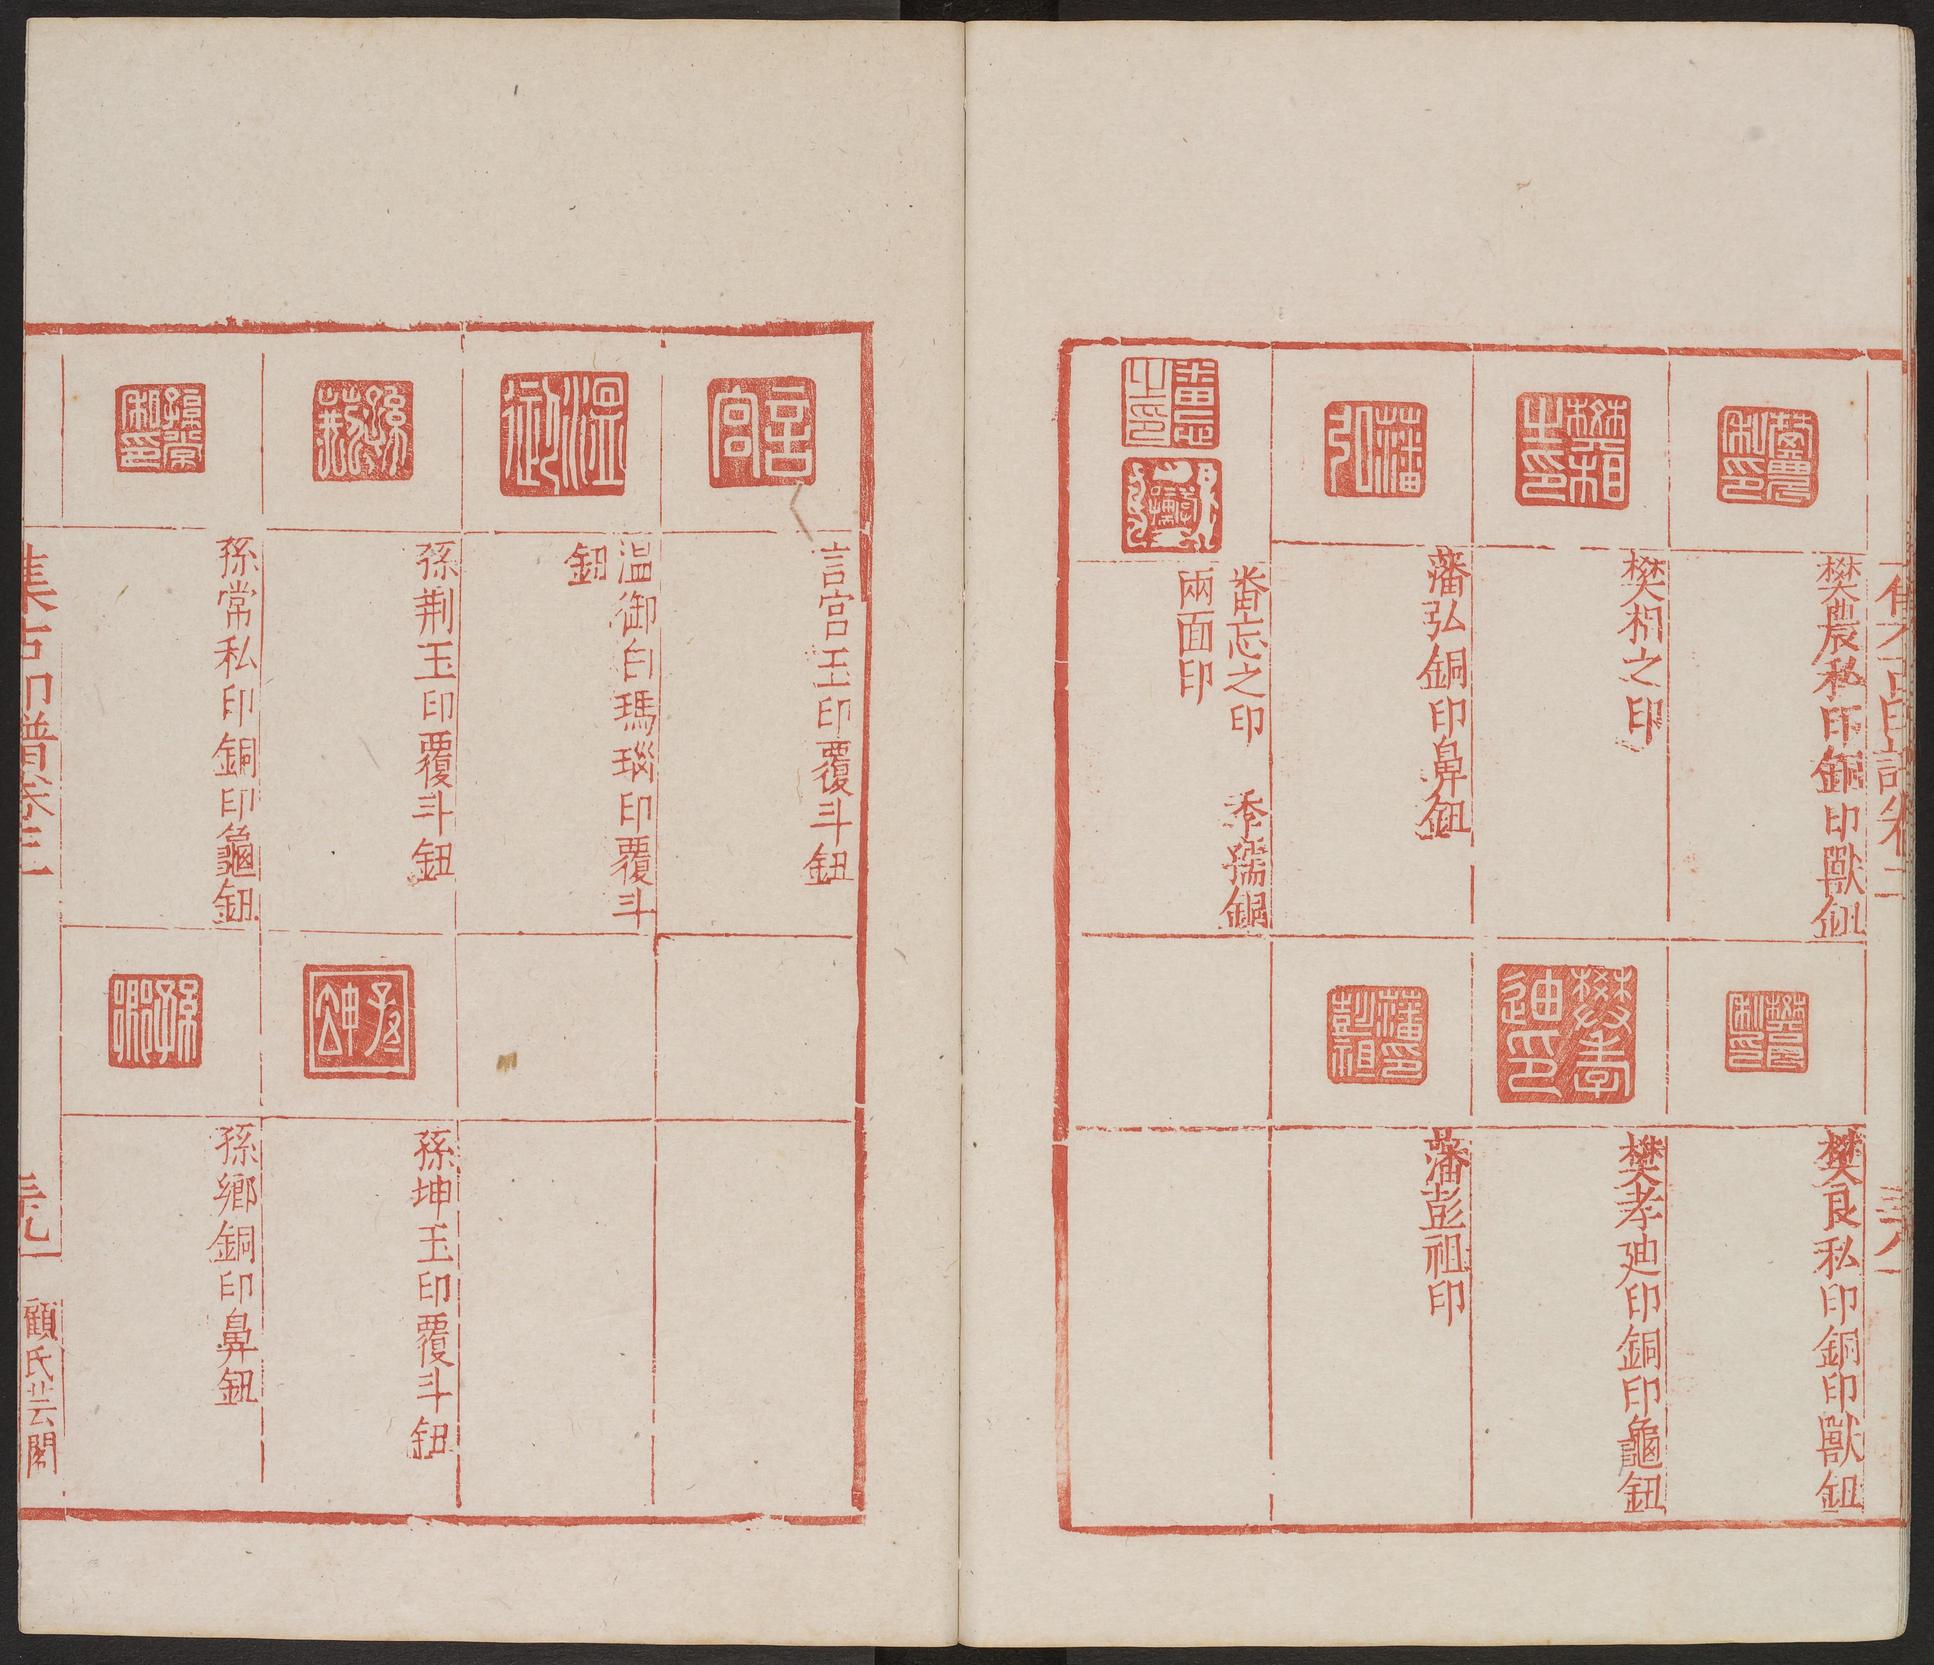 集古印譜卷二
三八
樊農私印銅印獸鈕
樊相之印
藩弘銅印鼻鈕
番忘之印 季孺銅
兩面印
樊良私印銅印獸鈕
樊孝迪印銅印龜鈕
藩彭祖印
言宮玉印覆斗鈕
温御白瑪瑙印覆斗
鈕
孫荆玉印覆斗鈕
孫常私印銅印龜鈕
孫坤玉印覆斗鈕
孫鄉銅印鼻鈕
集古印譜卷三
三九
顧氏芸閣